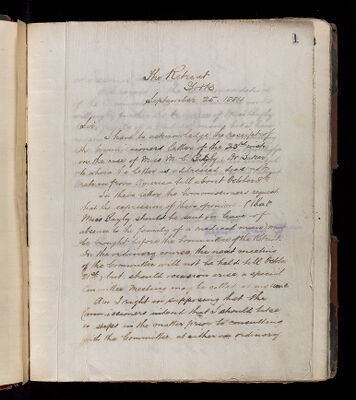 1
The Retreat
York
September 25. 1884
Sir,
I have to acknowledge the receipt of
the Commissioners letter of the 23rd inst
on the case of Miss M. C. Dr. Baker
to whom the letter is addressed does not
return from America till about October 8th
In their letter the Commissioners request
that the expression of their opinion (that
Miss should be sent on leave of
absence to the family of a medical man) may
be brought before the Committee of the Retreat.
In the ordinary course, the next meeting
of the Committee will not be held till October
, but should occasion arise a special
Committee Meeting may be called at any time
Am I right in supposing that the
Commissioners intend that I should take
steps in the matter prior to consulting
with the Committee, at either an ordinary